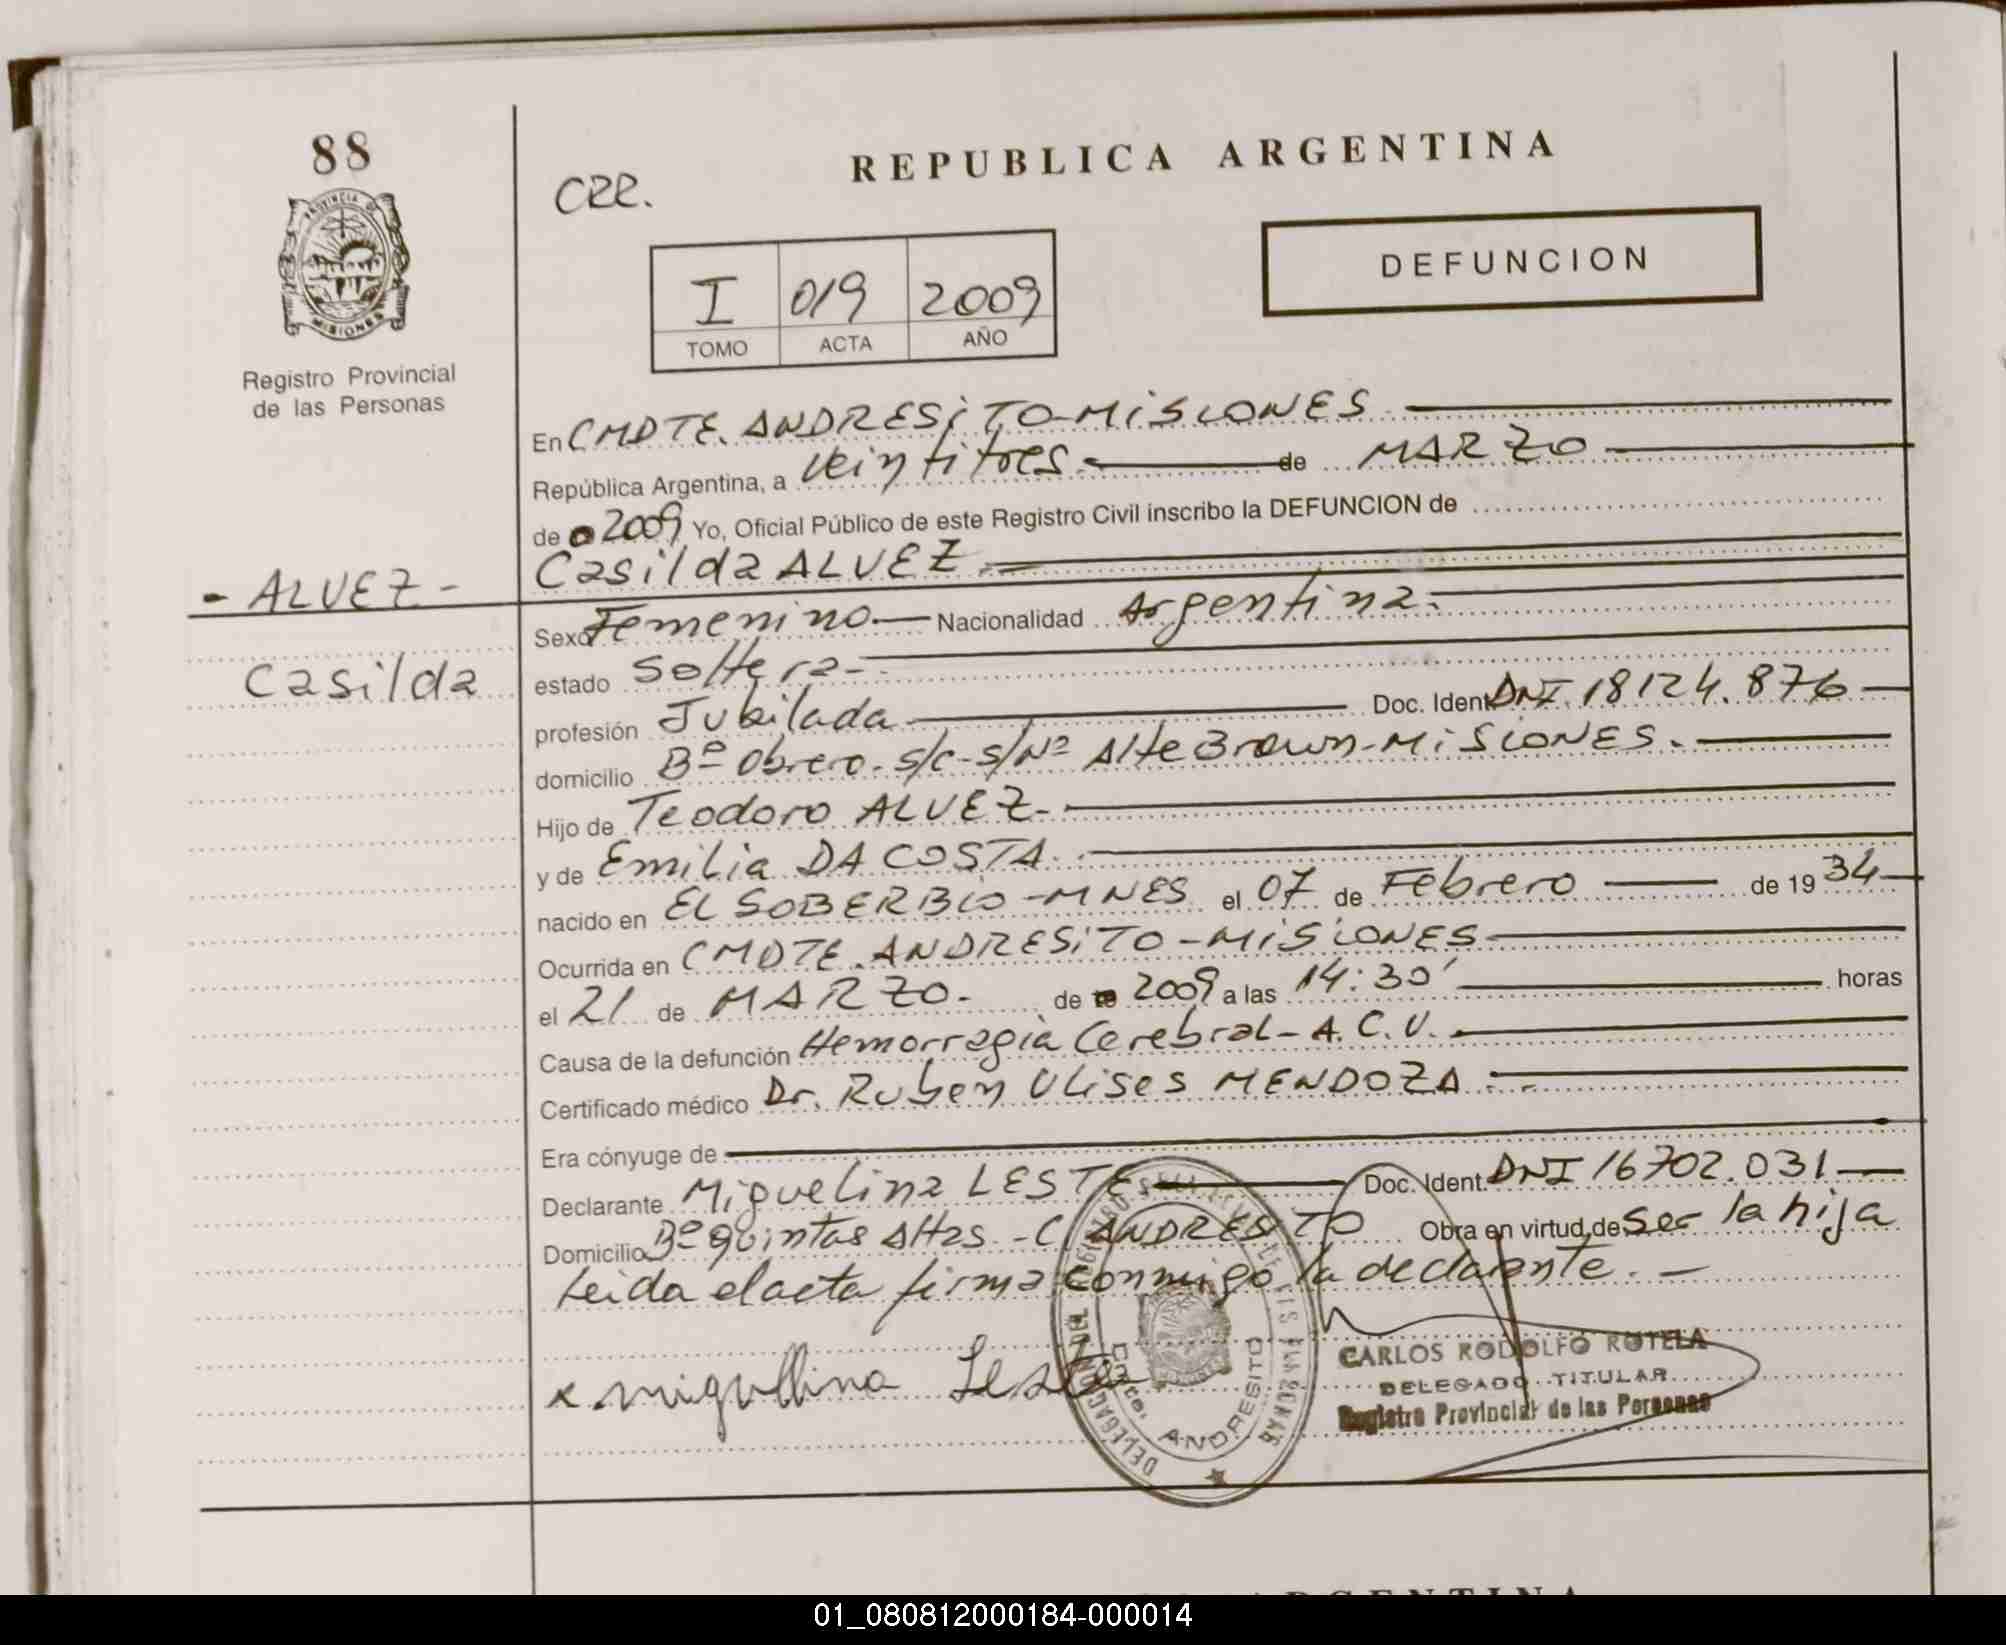 88
REPUBLICA ARGENTINA
CZZ.
PROVINCIA DE
MISIONES
DEFUNCION
I 019 2009
TOMO ACTA AÑO
Registro Provincial
de las Personas
En CMDTE. ANDRESITO-MISIONES.
República Argentina, a veintitres. de MARZO
de 2009 Yo, Oficial Público de este Registro Civil inscribo la DEFUNCION de
- ALVEZ - Casilda ALVEZ.
Sexo Femenino. Nacionalidad Argentina.
Casilda
estado Soltera-
profesión Jubilada Doc. Ident. DNI 18124.876
domicilio Bº Obrero. s/c-s/Nº Alte Brown-MISIONES.
Hijo de Teodoro ALVEZ.
y de Emilia DA COSTA.
nacido en EL SOBERBIO-MNES el 07 de Febrero de 1934
Ocurrida en CMDTE. ANDRESITO-MISIONES
el 21 de MARZO. de 2009 a las 14:30' horas
Causa de la defunción Hemorragia Cerebral-A.C.V.
Certificado médico Dr. Ruben Ulises MENDOZA
Era cónyuge de
Declarante Miguelina LESTE Doc. Ident. DNI 16702.031
Domicilio Bº quintas Altas - C. ANDRESITO Obra en virtud de ser la hija
Leida el acta firma conmigo la declarante.-
x migullina Leste
CARLOS RODOLFO ROTELA
DELEGADO TITULAR
Registro Provincial de las Personas
DELEGACION DEL REGISTRO PROVINCIAL DE LAS PERSONAS
Cmte. ANDRESITO
01_080812000184-000014